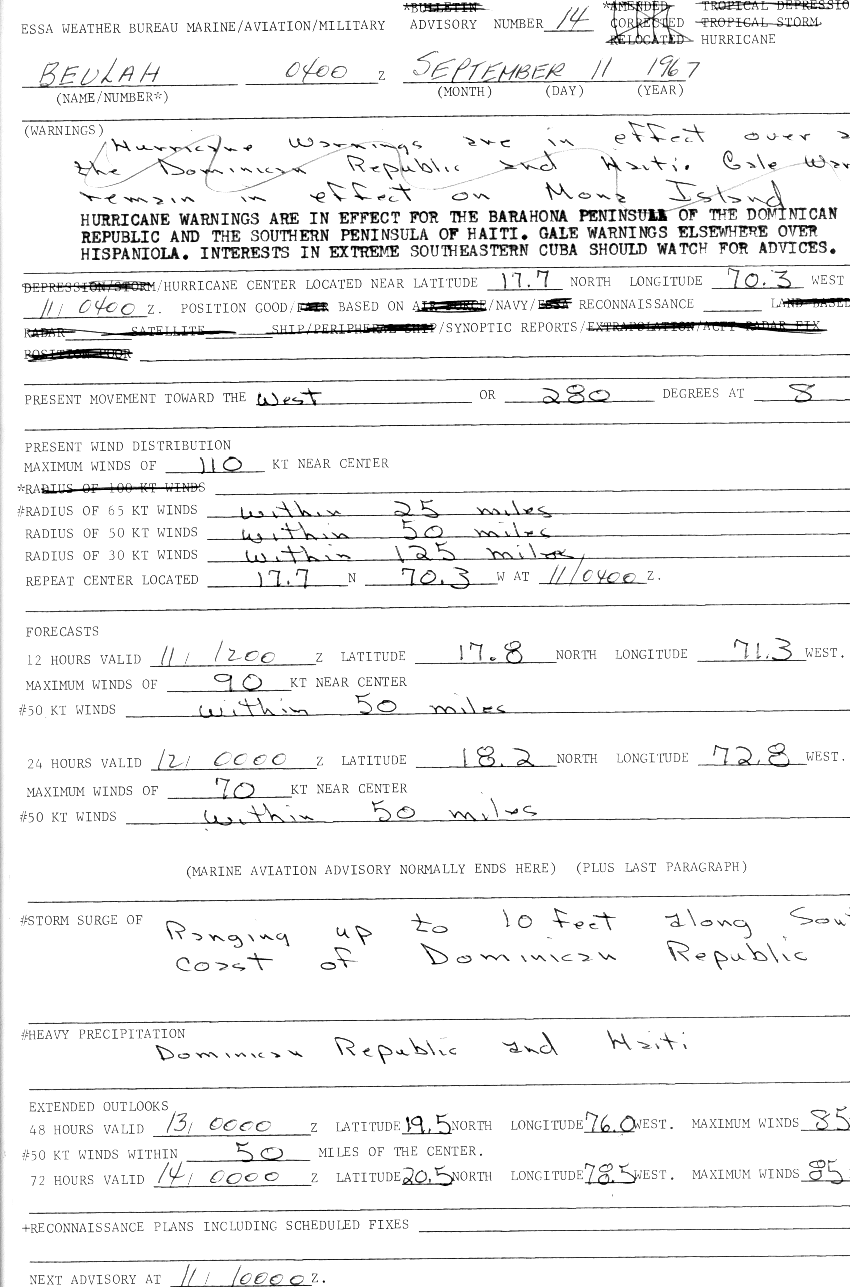 *BULLETIN *AMENDED TROPICAL DEPRESSIO
ESSA WEATHER BUREAU MARINE/AVIATION/MILITARY ADVISORY NUMBER 14 CORRECTED TROPICAL STORM
RELOCATED HURRICANE
BEULAH 0400 Z SEPTEMBER 11 1967
(NAME/NUMBER*) (MONTH) (DAY) (YEAR)
(WARNINGS)
Hurricane Warnings are in effect over a
the Dominican Republic and Haiti. Gale War
remain in effect on Mona Island
HURRICANE WARNINGS ARE IN EFFECT FOR THE BARAHONA PENINSULA OF THE DOMINICAN
REPUBLIC AND THE SOUTHERN PENINSULA OF HAITI. GALE WARNINGS ELSEWHERE OVER
HISPANIOLA. INTERESTS IN EXTREME SOUTHEASTERN CUBA SHOULD WATCH FOR ADVICES.
DEPRESSION/STORM/HURRICANE CENTER LOCATED NEAR LATITUDE 17.7 NORTH LONGITUDE 70.3 WEST
11/0400 Z. POSITION GOOD/FAIR BASED ON AIR FORCE/NAVY/ESSA RECONNAISSANCE LAND BASED
RADAR SATELLITE SHIP/PERIPHERAL SHIP/SYNOPTIC REPORTS/EXTRAPOLATION/ACFT RADAR FIX
POSITION POOR
PRESENT MOVEMENT TOWARD THE West OR 280 DEGREES AT 8
PRESENT WIND DISTRIBUTION
MAXIMUM WINDS OF 110 KT NEAR CENTER
*RADIUS OF 100 KT WINDS
#RADIUS OF 65 KT WINDS within 25 miles
RADIUS OF 50 KT WINDS within 50 miles
RADIUS OF 30 KT WINDS within 125 miles
REPEAT CENTER LOCATED 17.7 N 70.3 W AT 11/0400 Z.
FORECASTS
12 HOURS VALID 11/ 1200 Z LATITUDE 17.8 NORTH LONGITUDE 71.3 WEST.
MAXIMUM WINDS OF 90 KT NEAR CENTER
#50 KT WINDS within 50 miles
24 HOURS VALID 12/ 0000 Z LATITUDE 18.2 NORTH LONGITUDE 72.8 WEST.
MAXIMUM WINDS OF 70 KT NEAR CENTER
#50 KT WINDS within 50 miles
(MARINE AVIATION ADVISORY NORMALLY ENDS HERE) (PLUS LAST PARAGRAPH)
#STORM SURGE OF Ranging up to 10 feet along Sout
coast of Dominican Republic
#HEAVY PRECIPITATION
Dominican Republic and Haiti
EXTENDED OUTLOOKS
48 HOURS VALID 13/ 0000 Z LATITUDE 19.5 NORTH LONGITUDE 76.0 WEST. MAXIMUM WINDS 85
#50 KT WINDS WITHIN 50 MILES OF THE CENTER.
72 HOURS VALID 14/ 0000 Z LATITUDE 20.5 NORTH LONGITUDE 78.5 WEST. MAXIMUM WINDS 85
+RECONNAISSANCE PLANS INCLUDING SCHEDULED FIXES
NEXT ADVISORY AT 11/ 10000 Z.